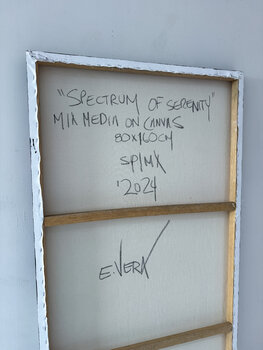 "SPECTRUM OF SERENITY"
MIX MEDIA ON CANVAS
80X160CM
SP/MX
'2024
E.VERA